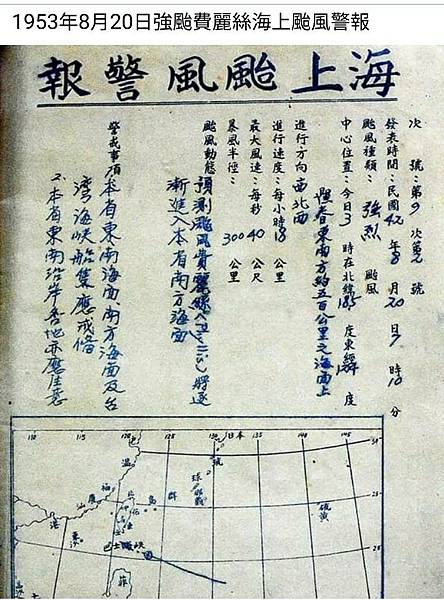 1953年8月20日強颱費麗絲海上颱風警報
海上颱風警報
次號：第9次第2號
發表時間：民國42年8月20日7時10分
颱風種類：強烈颱風
中心位置：今日3時在北緯18.5度東經度
恆春東南方約五百公里之海面上
進行方向西北西
進行速度：每小時18公里
最大風速：每秒40公尺
暴風半徑：300公里
颱風動態預測颱風費麗絲(Phyllis)將逐
漸進入本省南方海面
警戒事項本省東南海面南方海面及台
灣海峽船隻應戒備
2.本省東南沿岸各地亦應注意
110 115 120 125 130 日本 135 140 145
琉球群島
硫黃
溫
福
廈
汕
港
東
巴士海峽
菲
25
20